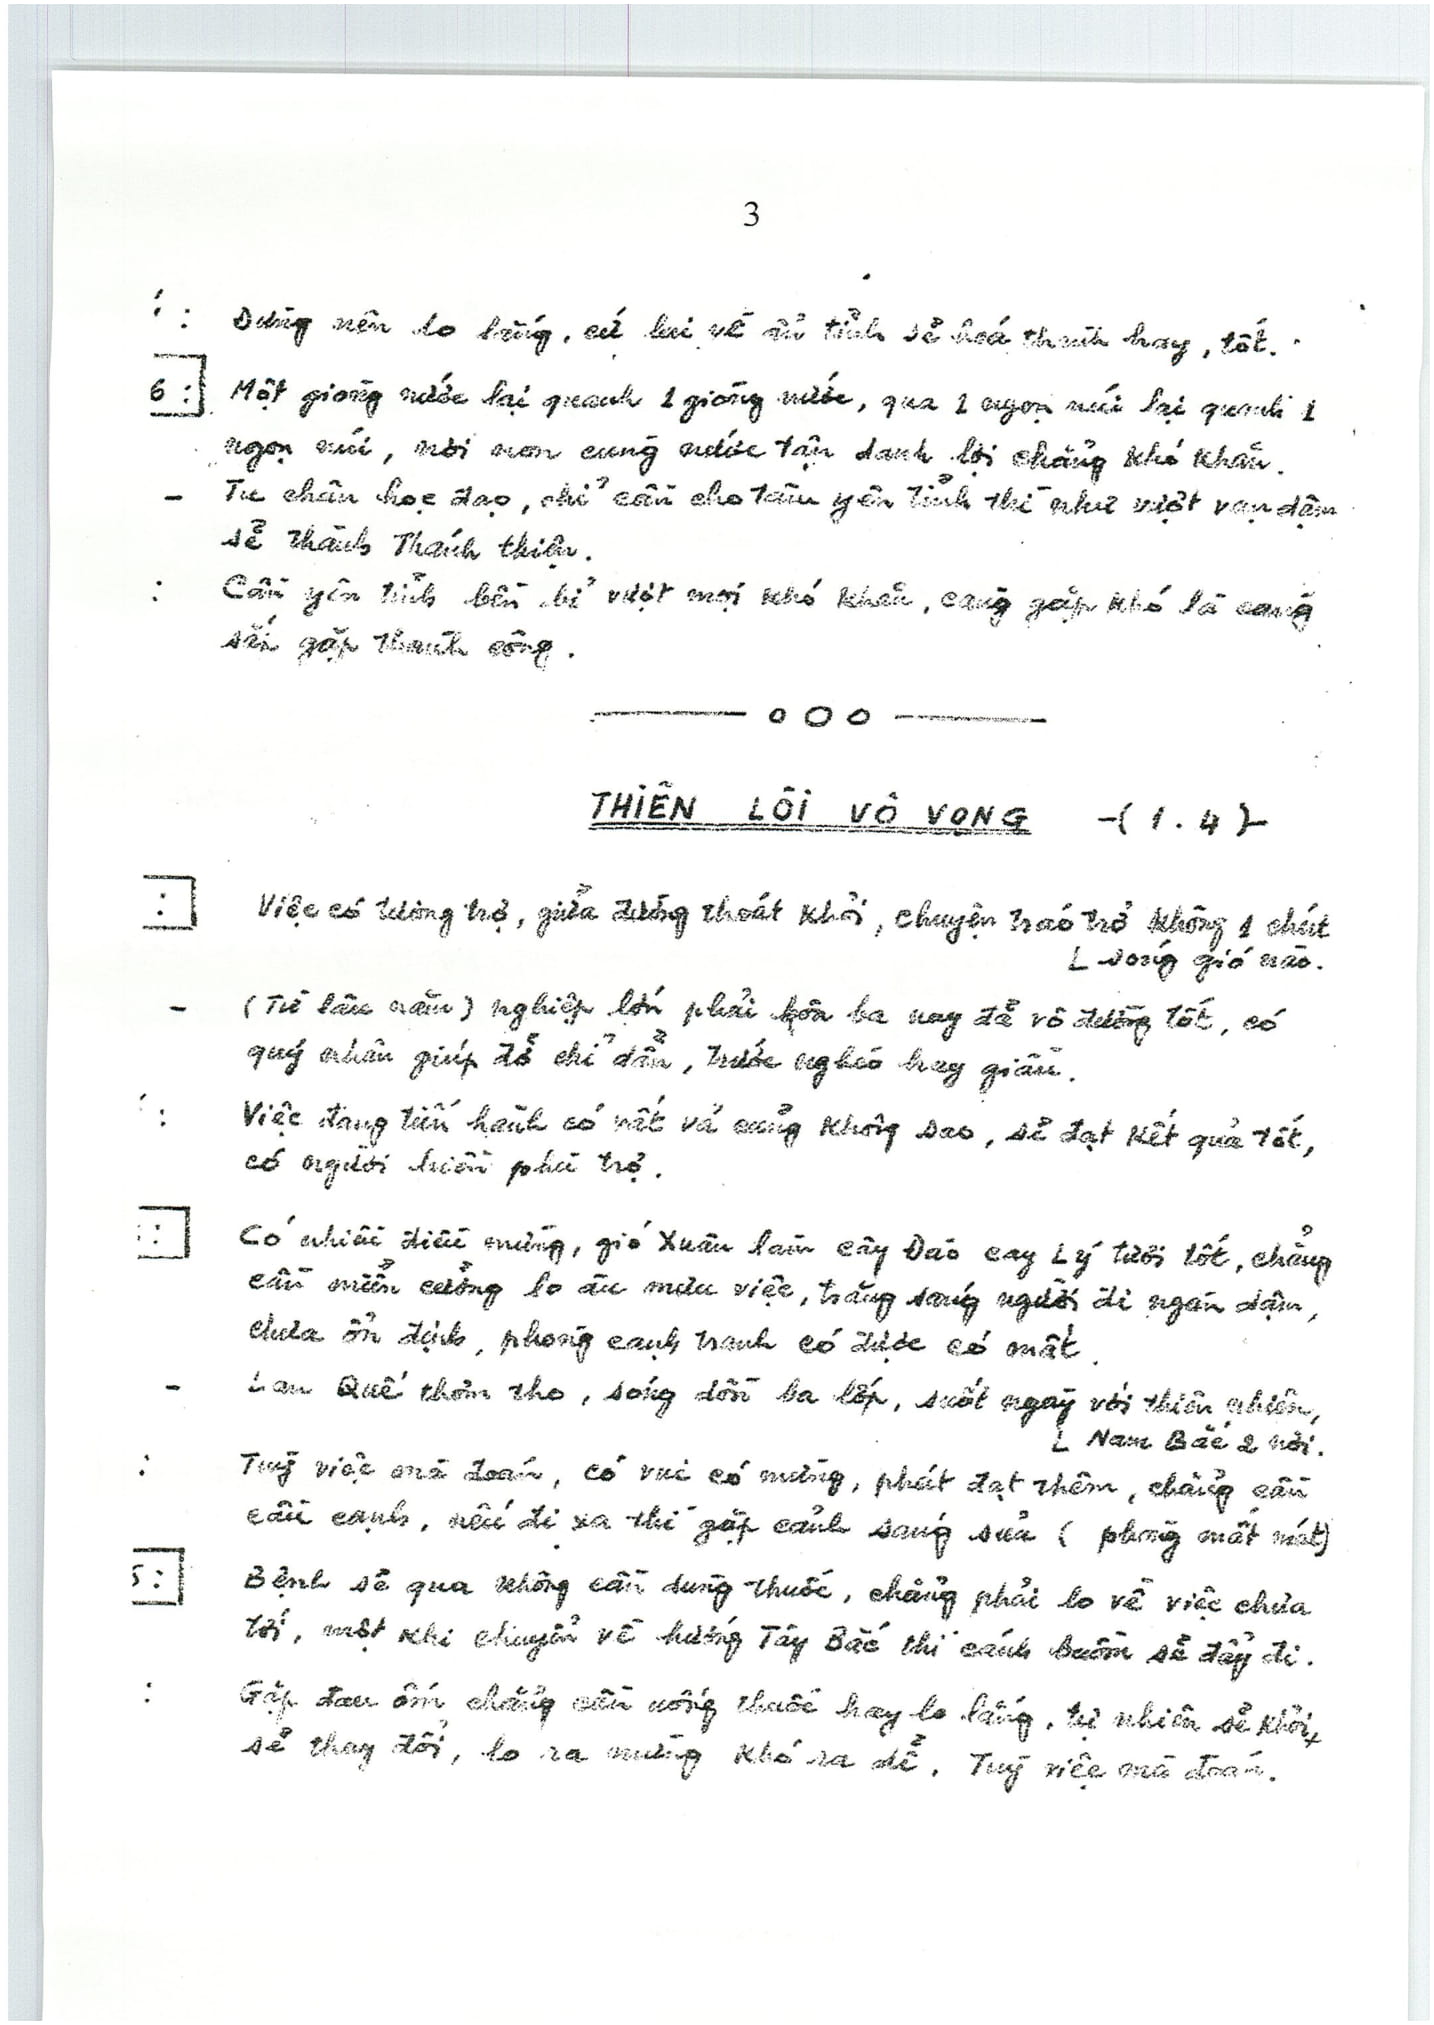 3
: Đừng nên lo lắng, cứ lui về ẩn tỉnh sẽ hoá thành hay, tốt.
6 : Một giòng nước lại quanh 1 giòng nước, qua 1 ngọn núi lại quanh 1
ngọn núi, nơi non cùng nước tận danh lợi chẳng khó khăn.
- Tu chân học đạo, chỉ cần cho tâm yên tỉnh thì như vượt vạn dậm
sẽ thành Thánh thiện.
: Cần yên tỉnh bền bỉ vượt mọi khó khăn, càng gặp khó là càng
sắp gặp thành công.
——— o O o ———
THIÊN LÔI VÔ VỌNG -( 1 . 4 )-
: Việc có tương trợ, giữa đường thoát khỏi, chuyện tráo trở không 1 chút
L sóng gió nào.
- (Từ lâu năm) nghiệp lớn phải bôn ba nay đã vô đường tốt, có
quý nhân giúp đỡ chỉ dẫn, trước nghèo hay giàu.
: Việc đang tiến hành có vất vả cũng không sao, sẽ đạt kết quả tốt,
có người hiền phù trợ.
: Có nhiều điều mừng, gió Xuân làm cây Đào cay Lý tươi tốt, chẳng
cần miễn cưỡng lo âu mưu việc, trăng sáng người đi ngàn dậm,
chưa ổn định, phòng cạnh tranh có được có mất.
- Lan Quế thơm tho, sóng dồn ba lớp, suốt ngày với thiên nhiên,
L Nam Bắc 2 nơi.
: Tuỳ việc mà đoán, có vui có mừng, phát đạt thêm, chẳng cần
cầu cạnh, nếu đi xa thì gặp cảnh sáng sủa ( phòng mất mát)
5 : Bệnh sẽ qua không cần dùng thuốc, chẳng phải lo về việc chưa
tới, một khi chuyển về hướng Tây Bắc thì cánh buồm sẽ đẩy đi.
: Gặp đau ốm chẳng cần uống thuốc hay lo lắng, tự nhiên sẽ khỏi,
sẽ thay đổi, lo ra mừng khó ra dễ. Tuỳ việc mà đoán.